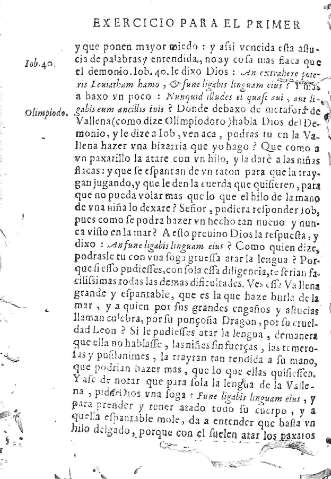 EXERCICIO PARA EL PRIMER
y que ponen mayor miedo : y asi vencida esta astu-
cia de palabras y entendida, no ay cosa mas flaca que
Iob. 40.
el demonio. Iob. 40. le dixo Dios : An extrahere pote-
ris Leviatham hamo, & fune ligabis linguam eius? Y mas
a baxo vn poco : Nunquid illudes ei quasi aui, aut li-
gabis eum ancillis tuis? Donde debaxo de metafora de
Olimpiodo.
Vallena (como dize Olimpiodoro) habia Dios del De-
monio, y le dize a Iob, ven aca, podras tu en la Va-
llena hazer vna bizarria que yo hago? Que como a
vn paxarillo la atare con vn hilo, y la darè a las niñas
flacas: y que se espantan de vn raton para que la tray-
gan jugando, y que le den la cuerda que quisieren, para
que no pueda volar mas que lo que el hilo de la mano
de vna niña lo dexare? Señor, pudiera responder Iob,
pues como se podra hazer vn hecho tan nueuo y nun-
ca visto en la mar? A esso preuino Dios la respuesta: y
dixo : An fune ligabis linguam eius? Como quien dize,
podrasle tu con vna soga gruessa atar la lengua? Por-
que si esso pudiesses, con sola essa diligencia, te serian fa-
cilissimas todas las demas dificultades. Ves esse Vallena
grande y espantable, que es la que haze burla de la
mar, y a quien por sus grandes engaños y astucias
llaman culebra, por su ponçoña Dragon, por su cruel-
dad Leon? Si le pudiesses atar la lengua, demanera
que ella no hablasse, las niñas sin fuerças, las temero-
sas y pusilanimes, la trayran tan rendida a su mano,
que podrian hazer mas, que lo que ellas quisiessen.
Y ase de notar que para sola la lengua de la Valle-
na, pide Dios vna soga : Fune ligabis linguam eius, y
para prender y tener atado todo su cuerpo, y a
quella espantable mole, da a entender que basta vn
hilo delgado, porque con el suelen atar los paxaros